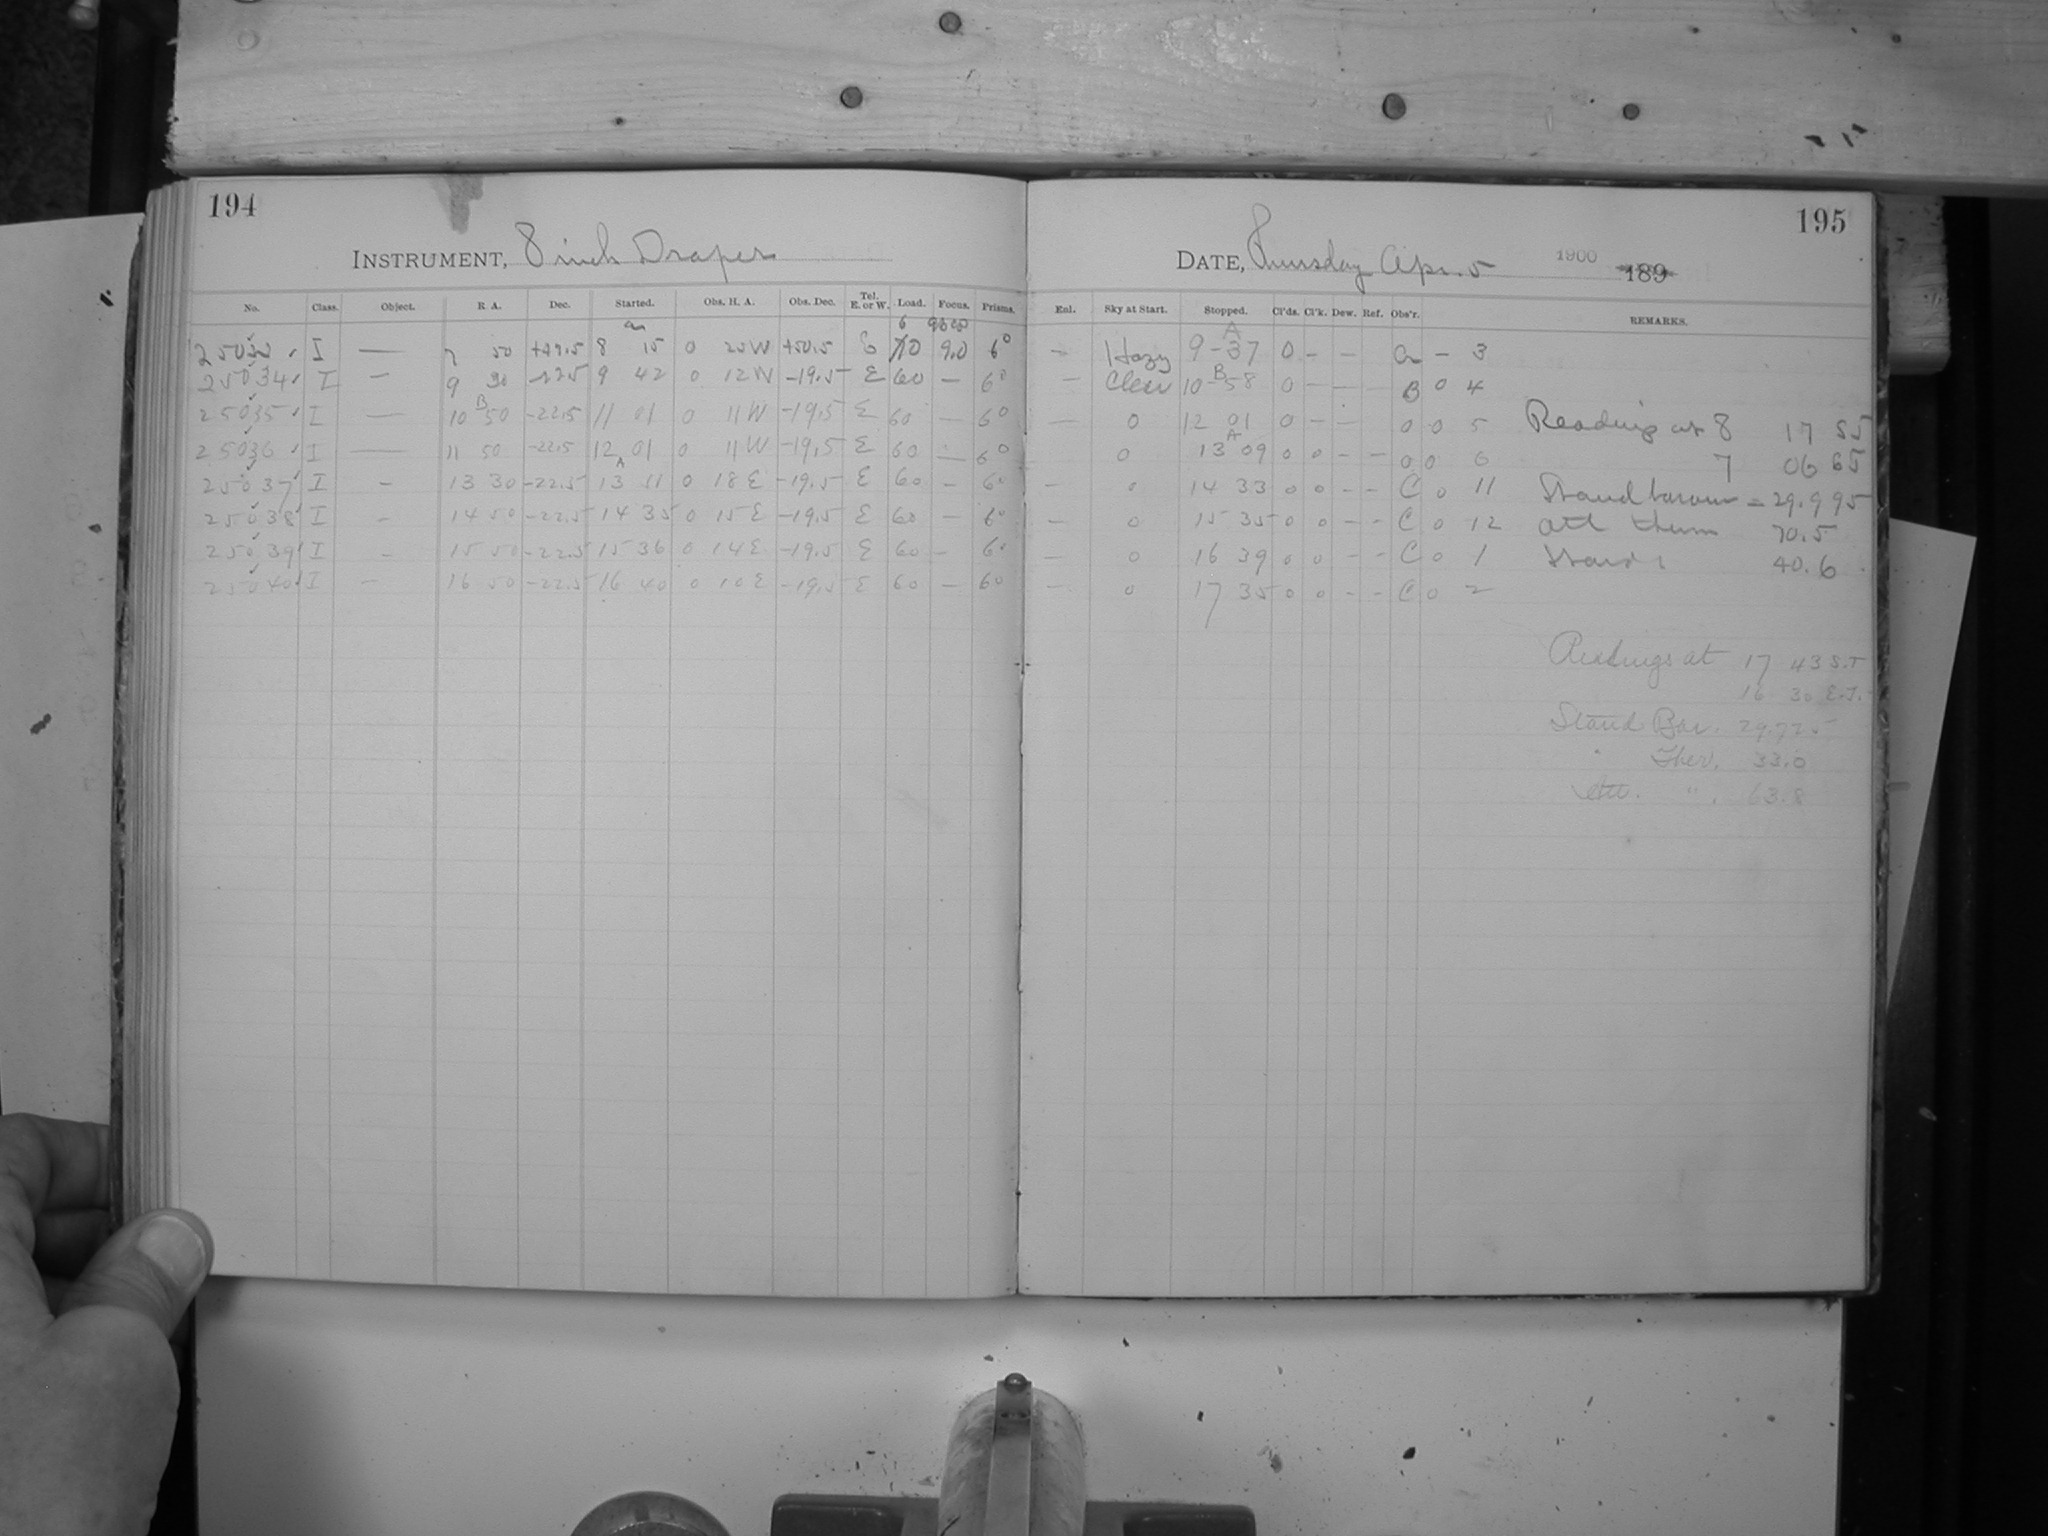 194
INSTRUMENT, 8 inch Draper
No. Class. Object. R. A. Dec. Started. Obs. H. A. Obs. Dec. Tel. E. or W. Load. Focus. Prisms.
I — 7 50 +49.5 8 15 0 25 W +50.5 E 9.0 6°
25034 I — 9 30 9 42 0 12 W -19.5 E 60 — 6°
25035 I — 10 50 -22.5 11 01 0 11 W -19.5 E 60 — 6°
25036 I — 11 50 -22.5 12 01 0 11 W -19.5 E 60 — 6°
25037 I - 13 30 -22.5 13 11 0 18 E -19.5 E 60 - 6°
25038 I - 14 50 -22.5 14 35 0 15 E -19.5 E 60 - 6°
25039 I - 15 50 -22.5 15 36 0 14 E -19.5 E 60 - 6°
25040 I - 16 50 -22.5 16 40 0 10 E -19.5 E 60 - 6°
195
DATE, Thursday Apr. 5 1900 189
Enl. Sky at Start. Stopped. Cl'ds. Cl'k. Dew. Ref. Obs'r. REMARKS.
A
— Hazy 9-37 0 - - a - 3
B
— Clear 10-58 0 - - - B 0 4
— 0 12 01 0 - - 0 0 5 Reading at 8 17 S.T
A
0 13 09 0 0 - - 0 0 6 7 06 E.T
- 0 14 33 0 0 - - C 0 11 Stand barom = 29.995
- 0 15 35 0 0 - - C 0 12 att therm 70.5
- 0 16 39 0 0 - - C 0 1 Stand 40.6
- 0 17 35 0 0 - - C 0 2
Readings at 17 43 S.T
16 30 E.T.
Stand Bar. 29.725
" Ther. 33.0
Att. " . 63.8